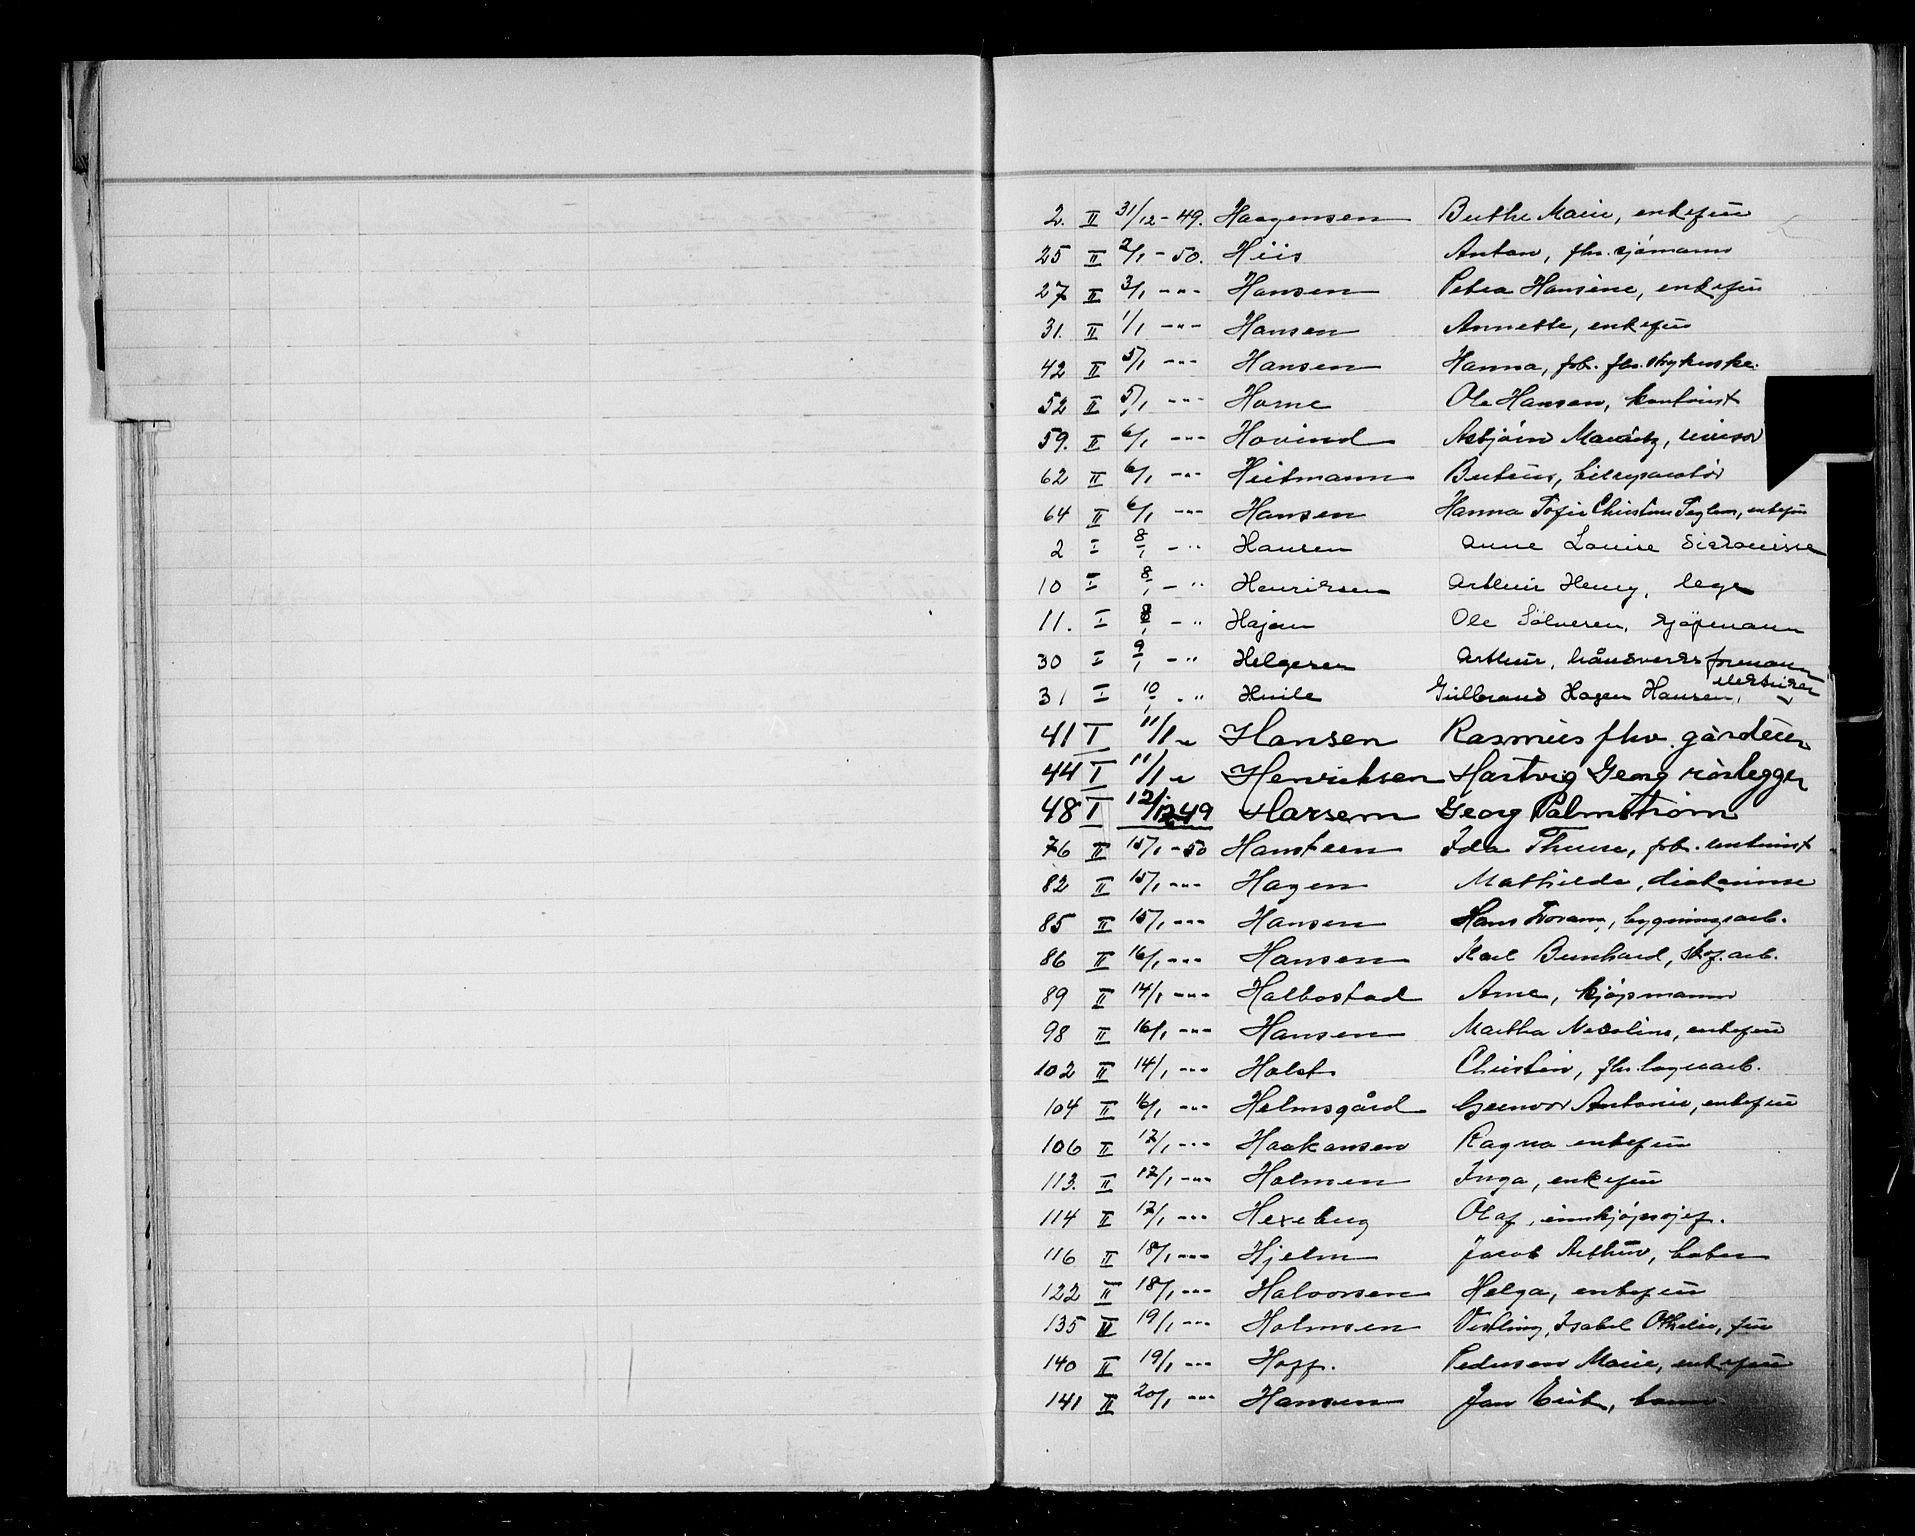 2. II 31/12-49. Haagensen Berthe Marie, enkefru
25 II 2/1 - 50. Hiis Anton, fhv. sjømann
27 II 3/1 -"- Hansen Petra Hansine, enkefru
31. II 1/1 -"- Hansen Annette, enkefru
42 II 5/1 -"- Hansen Hanna, frk. fhv. strykerske.
52 II 5/1 -"- Horne Ole Hansen, kontorist
59. II 6/1 -"- Hovind Asbjørn Mauritz, revisor
62 II 6/1 -"- Heitmann Berteus, bilreparatør
64 II 6/1 -"- Hansen Hanna Sofie Christine, enkefru
2 I 8/1 - " Hansen Anne Louise Diakonisse
10 I 8/1 - " Henriksen Arthur Henry, lege
11. I 8/1 - " Hajem Ole Sölversen, kjöpmann
30 I 9/1 - " Helgesen Arthur, håndverksformann
31 I 10/1 - " Hvile Gulbrand Hagen Hansen,
41 I 11/1 " Hansen Rasmus fhv. gårdeier
44 I 11/1 " Henriksen Hartvig Georg rörlegger
48 I 12/12 49 Harsem Georg Palmstrøm
76 II 15/1 - 50 Hansteen Ida Thuse, frk. kontorist
82 II 15/1 -"- Hagen Mathilde, diakonisse
85 II 15/1 -"- Hansen Hans, bygningsarb.
86 II 16/1 -"- Hansen Karl Bernhard, skog.arb.
89 II 14/1 -"- Halbostad Arne, kjøpmann
98 II 16/1 -"- Hansen Martha Nicoline, enkefru
102 II 14/1 -"- Holst Christian, fhv. lagerarb.
104 II 16/1 -"- Helmsgård Gunvor Antonie, enkefru
106 II 17/1 -"- Haakansen Ragna enkefru
113. II 17/1 -"- Holmen Inga, enkefru
114 II 17/1 -"- Hexeberg Olaf, innkjøpssjef.
116 II 18/1 -"- Hjelm Jacob Arthur, baker
122 II 18/1 -"- Halvorsen Helga, enkefru
135 II 19/1 -"- Holmsen Vestling, Isabel Othilie, fru
140 II 19/1 -"- Hoff. Pedersen Marie, enkefru
141 II 20/1 -"- Hansen Jan Erik, barn